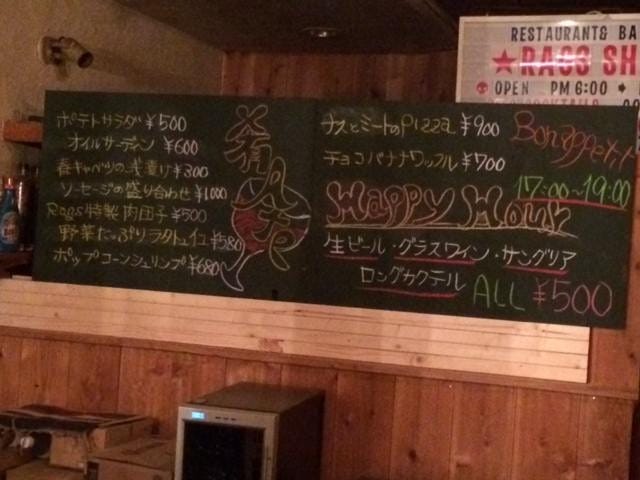 ポテトサラダ ¥500
オイルサーディン ¥600
春キャベツの浅漬け ¥300
ソーセージの盛り合わせ ¥1000
Rags特製 肉団子 ¥500
野菜たっぷりラタトュイユ ¥580
ポップコーンシュリンプ ¥680
ナスとミートのPizza ¥900
チョコバナナワッフル ¥700
Bon appetit
Happy Hour
17:00~19:00
生ビール・グラスワイン・サングリア
ロングカクテル ALL ¥500
RESTAURANT& BA
★RAGS SH
OPEN PM 6:00